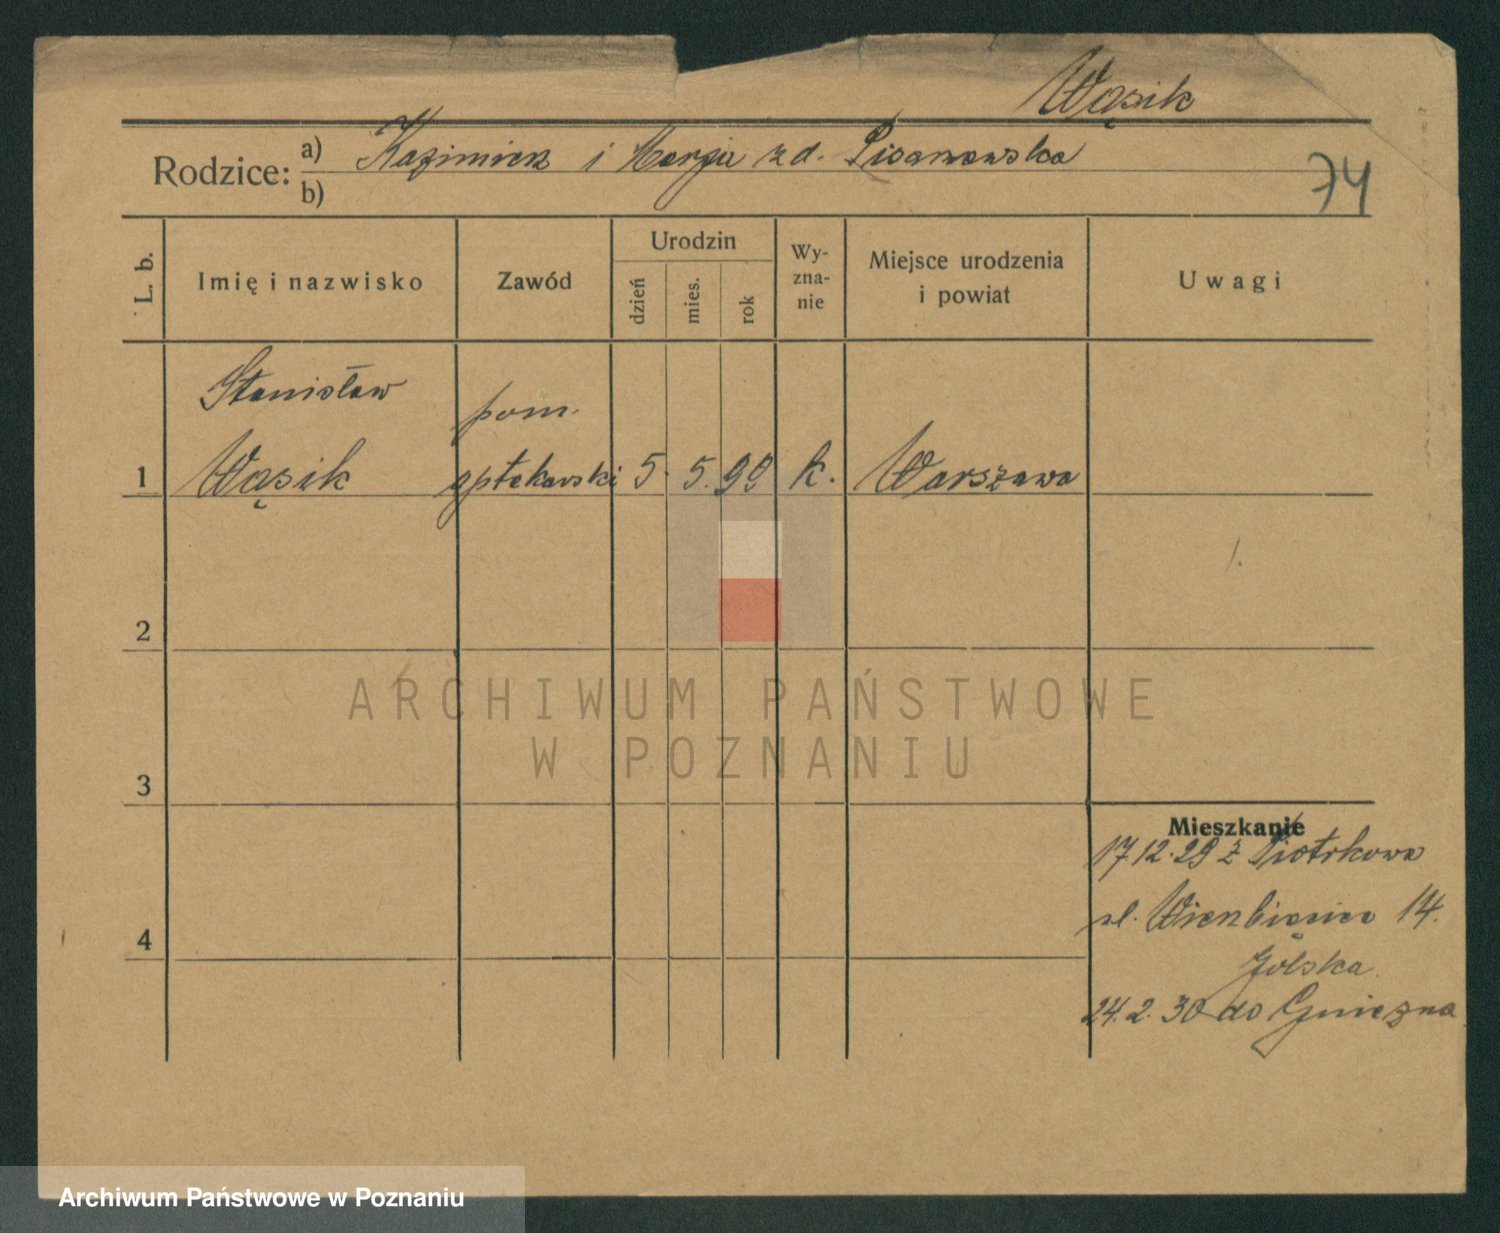 Wąsik
Rodzice: a) Kazimierz i Marja zd. Pisanowska
b)
74
L. b.
Imię i nazwisko
Zawód
Urodzin
dzień
mies.
rok
Wy-
zna-
nie
Miejsce urodzenia
i powiat
Uwagi
Stanisław pom.
1 Wąsik aptekarski 5. 5. 99 k. Warszawa
2
3
4
Mieszkanie
17.12.29 z Piotrkowa
ul. Wierzbięcice 14.
24.2.30 do Gniezna
ARCHIWUM PAŃSTWOWE
W POZNANIU
Archiwum Państwowe w Poznaniu